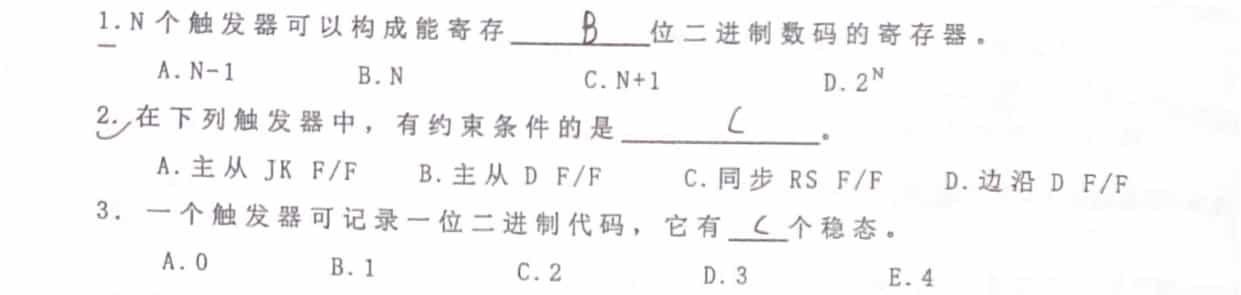 1.N个触发器可以构成能寄存 B 位二进制数码的寄存器。
A.N-1 B.N C.N+1 D.2ᴺ
2.在下列触发器中，有约束条件的是 C 。
A.主从 JK F/F B.主从 D F/F C.同步 RS F/F D.边沿 D F/F
3.一个触发器可记录一位二进制代码，它有 C 个稳态。
A.0 B.1 C.2 D.3 E.4